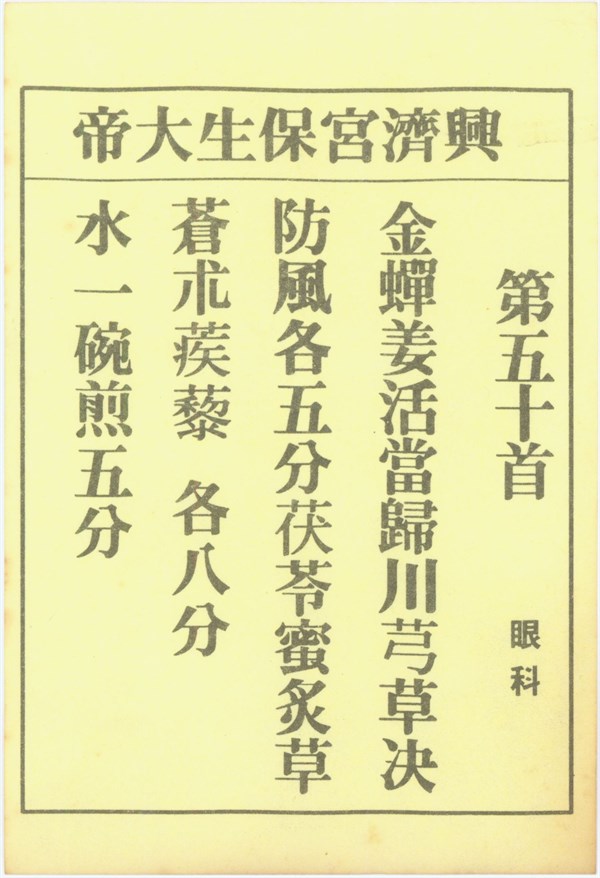 興濟宮保生大帝
第五十首 眼科
金蟬姜活當歸川芎草决
防風各五分茯苓蜜炙草
蒼朮蒺藜 各八分
水一碗煎五分